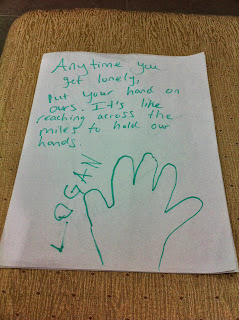 Anytime you
get lonely,
put your hand on
ours. It's like
reaching across the
miles to hold our
hands.
LOGAN